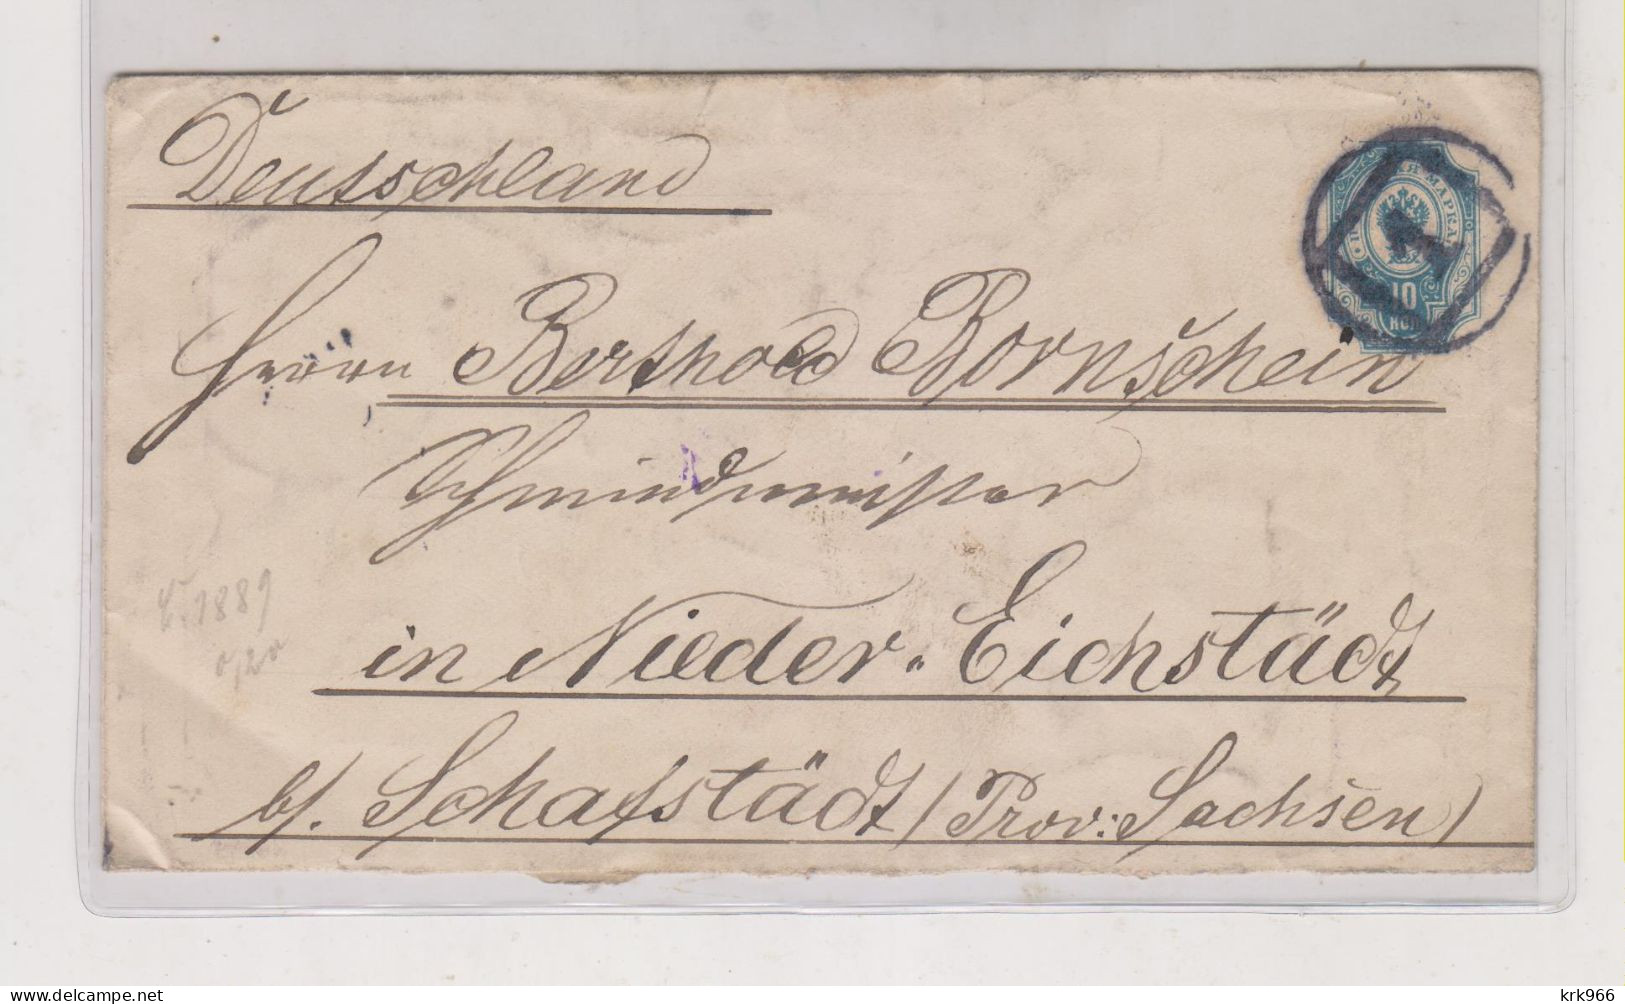 Deutschland
Herrn Berthold Bornschein
Schmiedemeister
in Nieder-Eichstädt
b/. Schafstädt (Prov: Sachsen)
МАРКА
10
КОП
1889
0,20
krk966